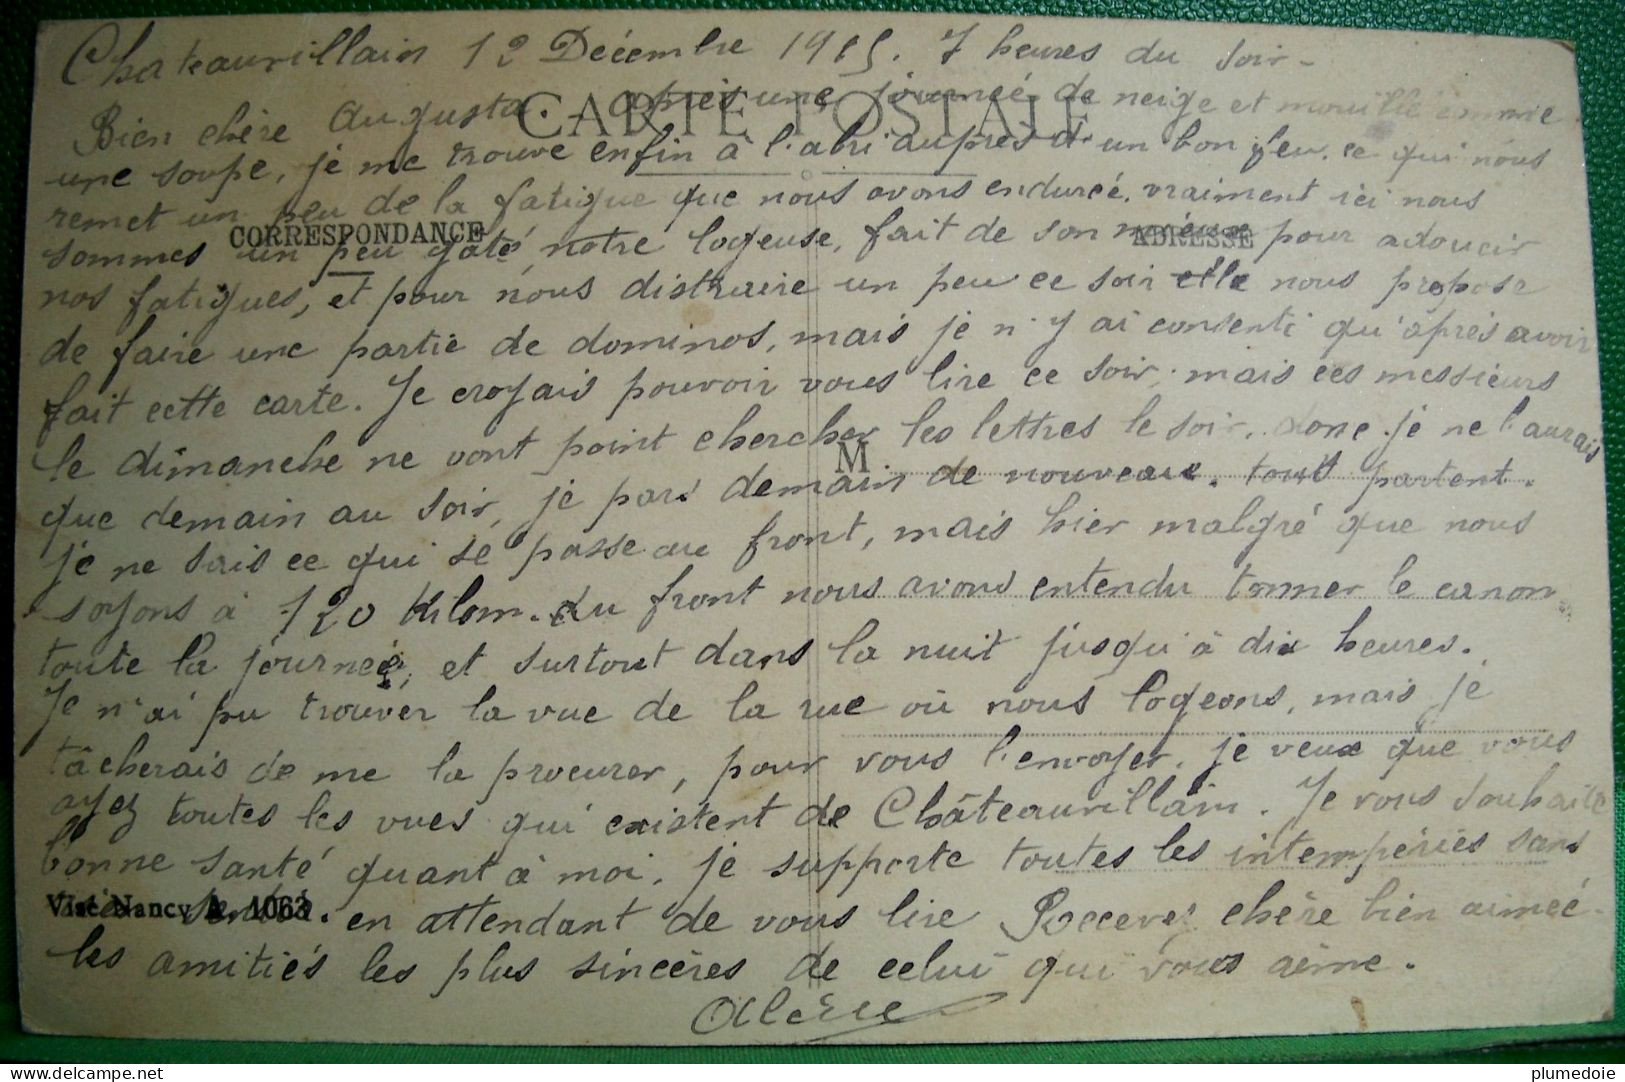 Chateauvillain 12 Décembre 1915. 7 heures du soir -
CARTE POSTALE
Bien chère Augusta. après une journeé de neige et mouillé comme
une soupe, je me trouve enfin à l'abri auprès d'un bon feu. ce qui nous
remet un peu de la fatigue que nous avons endureé. vraiment ici nous
CORRESPONDANCE
ADRESSE
sommes un peu gaté, notre logeuse, fait de son mieux pour adoucir
nos fatigues, et pour nous distraire un peu ce soir elle nous propose
de faire une partie de dominos, mais je n'y ai consenti qu'après avoir
fait cette carte. Je croyais pouvoir vous lire ce soir, mais ces messieurs
le dimanche ne vont point chercher les lettres le soir, donc je ne l'aurais
M
que demain au soir, je pars demain de nouveau. tous partent.
je ne sais ce qui se passe au front, mais hier malgré que nous
soyons à 120 Kilom. du front nous avons entendu tonner le canon
toute la journeé, et surtout dans la nuit jusqu'à dix heures.
Je n'ai pu trouver la vue de la rue où nous logeons, mais je
tâcherais de me la procurer, pour vous l'envoyer. je veux que vous
ayez toutes les vues qui existent de Châteauvillain. Je vous souhaite
bonne santé quant à moi, je supporte toutes les intempéries sans
Visé Nancy 1063
en attendant de vous lire Recevez chère bien aimeé
les amitiés les plus sincères de celui qui vous aime.
plumedoie